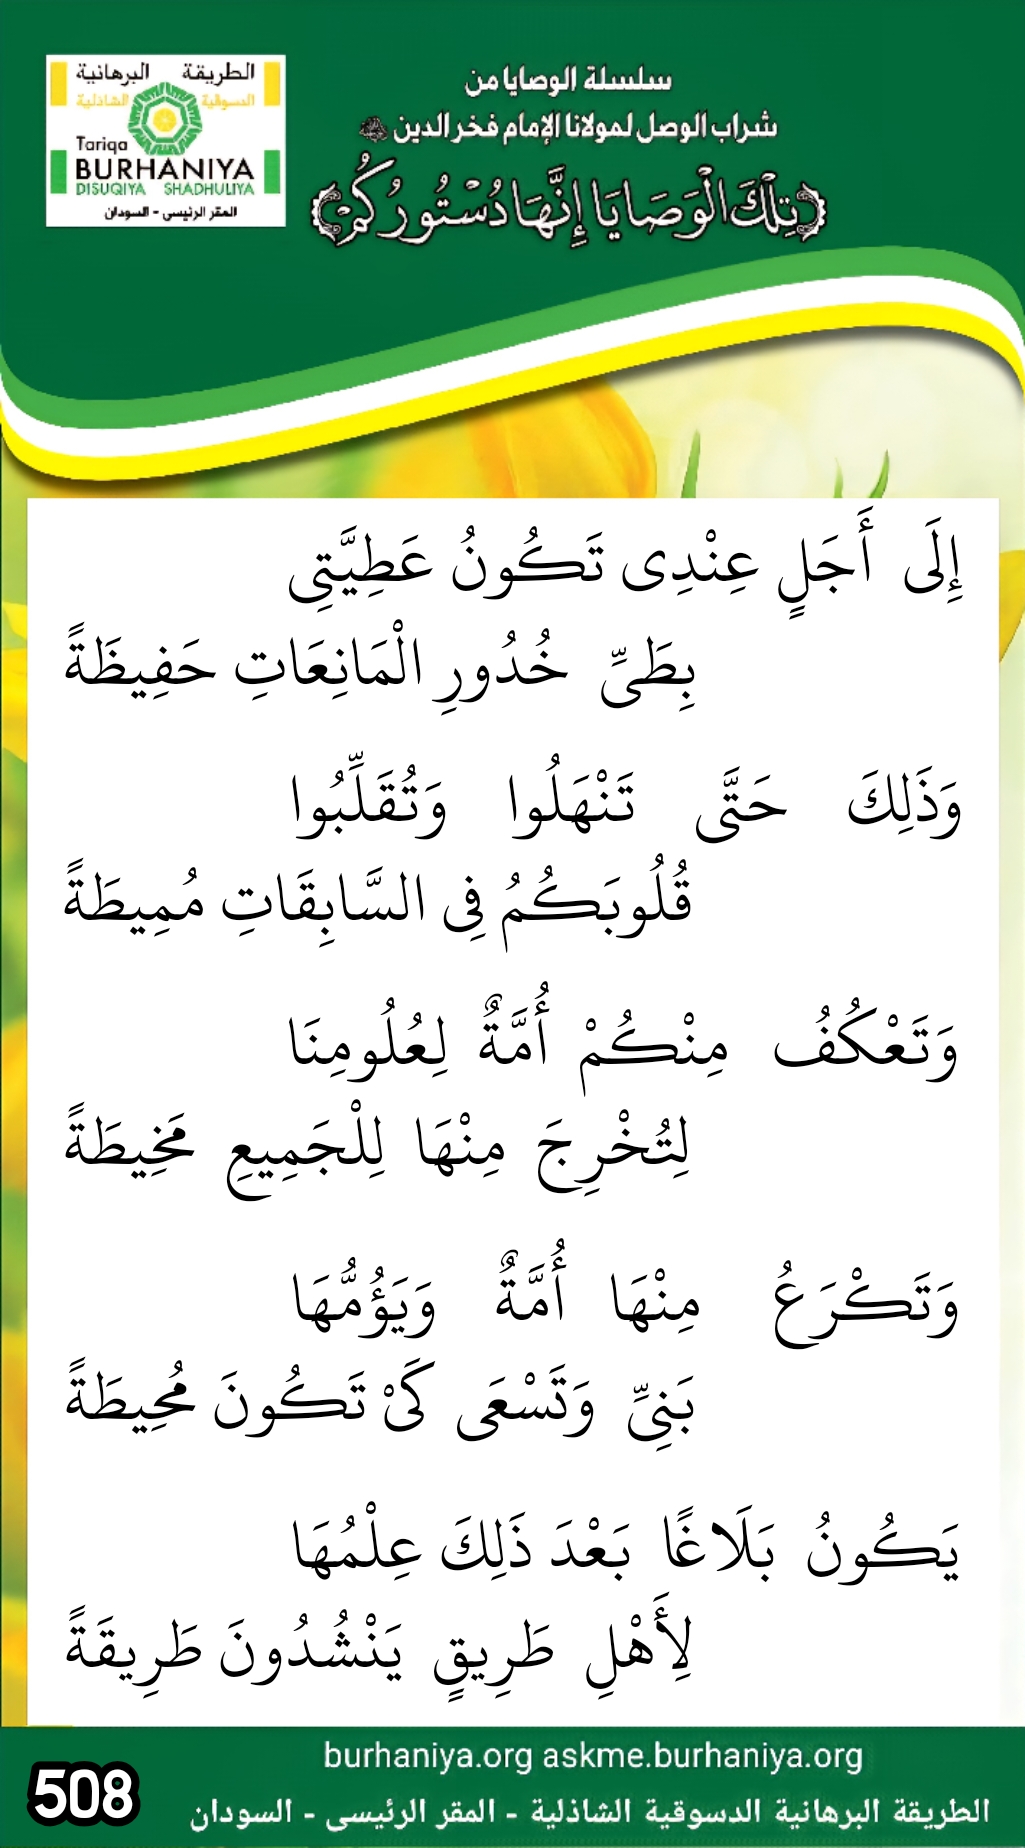 الطريقة البرهانية
الدسوقية الشاذلية
Tariqa
BURHANIYA
DISUQIYA SHADHULIYA
المقر الرئيسى - السودان
سلسلة الوصايا من
شراب الوصل لمولانا الإمام فخر الدين
تِلْكَ الْوَصَايَا إِنَّهَا دُسْتُورُكُمْ
إِلَى أَجَلٍ عِنْدِى تَكُونُ عَطِيَّتِى
بِطَىِّ خُدُورِ الْمَانِعَاتِ حَفِيظَةً
وَذَلِكَ حَتَّى تَنْهَلُوا وَتُقَلِّبُوا
قُلُوبَكُمُ فِى السَّابِقَاتِ مُمِيطَةً
وَتَعْكُفُ مِنْكُمْ أُمَّةٌ لِعُلُومِنَا
لِتُخْرِجَ مِنْهَا لِلْجَمِيعِ مَخِيطَةً
وَتَكْرَعُ مِنْهَا أُمَّةٌ وَيَؤُمُّهَا
بَنِىِّ وَتَسْعَى كَىْ تَكُونَ مُحِيطَةً
يَكُونُ بَلَاغًا بَعْدَ ذَلِكَ عِلْمُهَا
لِأَهْلِ طَرِيقٍ يَنْشُدُونَ طَرِيقَةً
burhaniya.org askme.burhaniya.org
508
الطريقة البرهانية الدسوقية الشاذلية - المقر الرئيسى - السودان